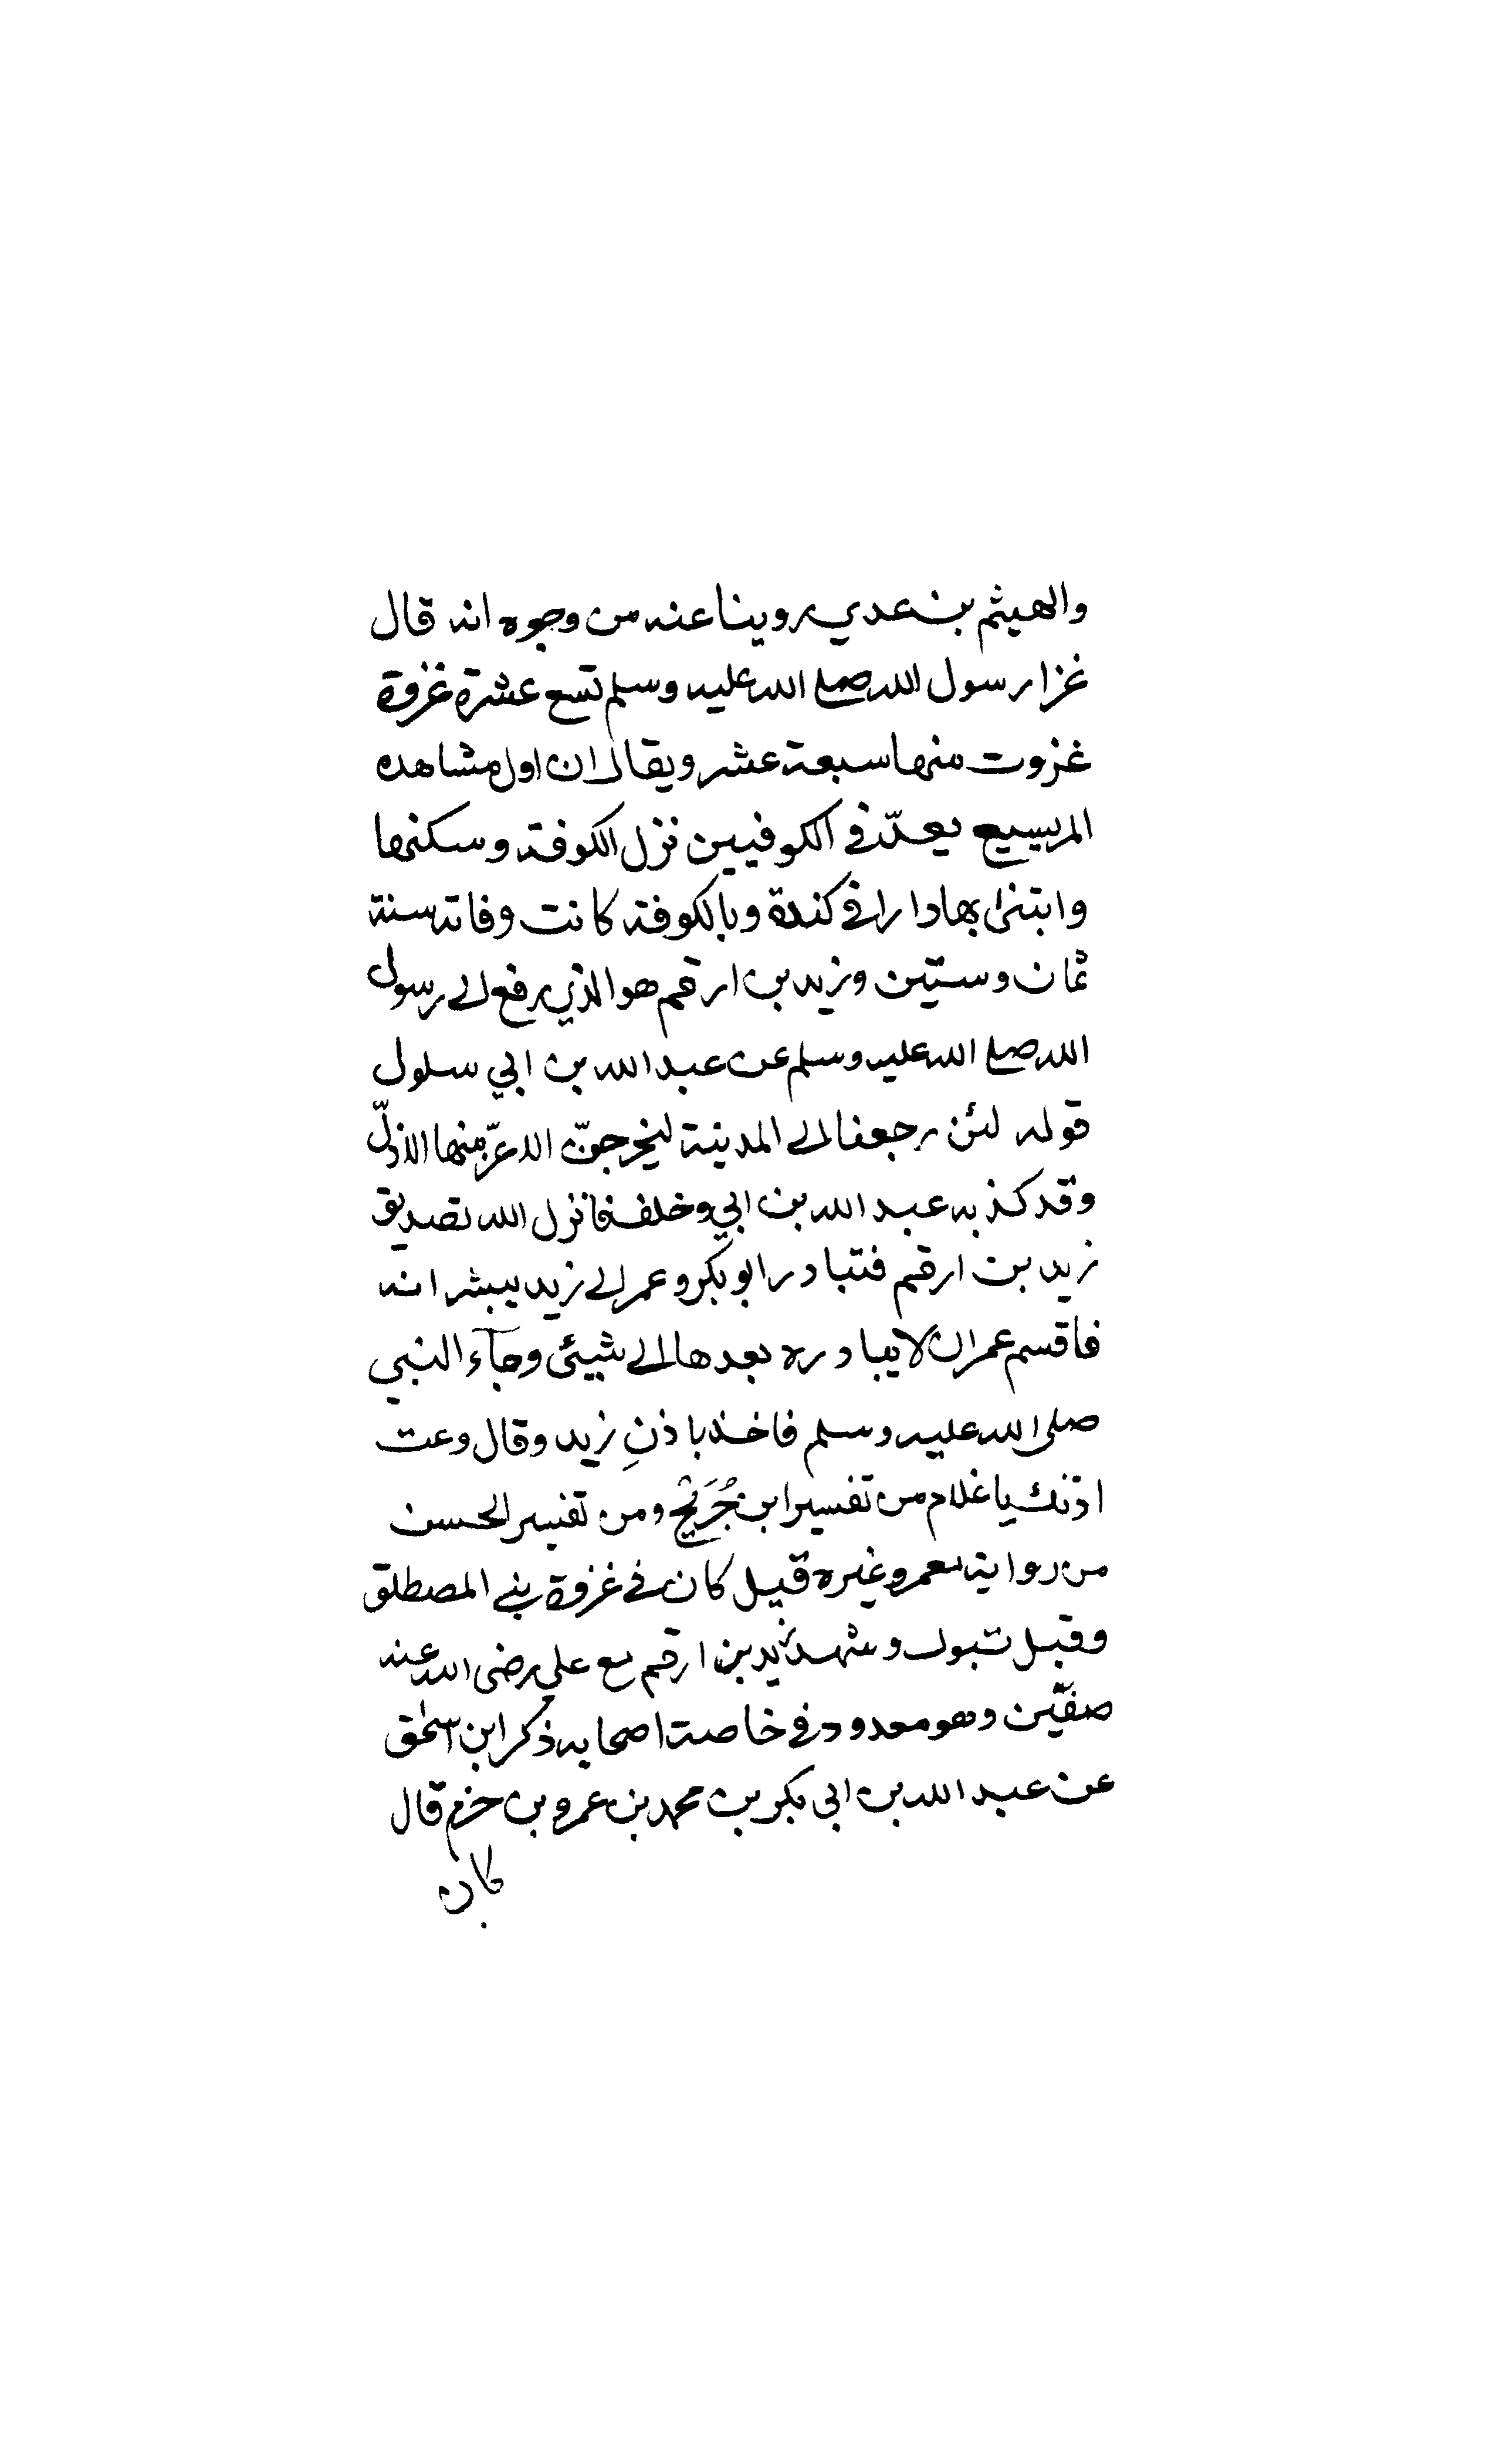 والهيثم بن عدي روينا عنه من وجوه انه قال
غزا رسول الله صلى الله عليه وسلم تسع عشرة غزوة
غزوت منها سبعة عشر ويقال ان اول مشاهده
المريسيع يعدّ في الكوفيين نزل الكوفة وسكنها
وابتنى بها دارا في كندة وبالكوفة كانت وفاته سنة
ثمان وستين وزيد بن ارقم هو الذي رفع الى رسول
الله صلى الله عليه وسلم عن عبد الله بن ابي سلول
قوله لئن رجعنا الى المدينة ليخرجنّ الاعزّ منها الاذلّ
وقد كذبه عبد الله بن ابي وخلف فانزل الله تصديق
زيد بن ارقم فتبادر ابو بكر وعمر الى زيد يبشرانه
فاقسم عمر ان لا يبادره بعدها الى شيئ وجآء النبي
صلى الله عليه وسلم فاخذ باذنِ زيد وقال وعت
اذنك يا غلام من تفسير ابن جُرَيْج ومن تفسير الحسن
من رواية معمر وغيره قيل كان في غزوة بني المصطلق
وقيل تبوك وشهد زيد بن ارقم مع علي رضى الله عنه
صفّين وهو معدود في خاصة اصحابه ذكر ابن اسحٰق
عن عبد الله بن ابي بكر بن محمد بن عمرو بن حزم قال
كان